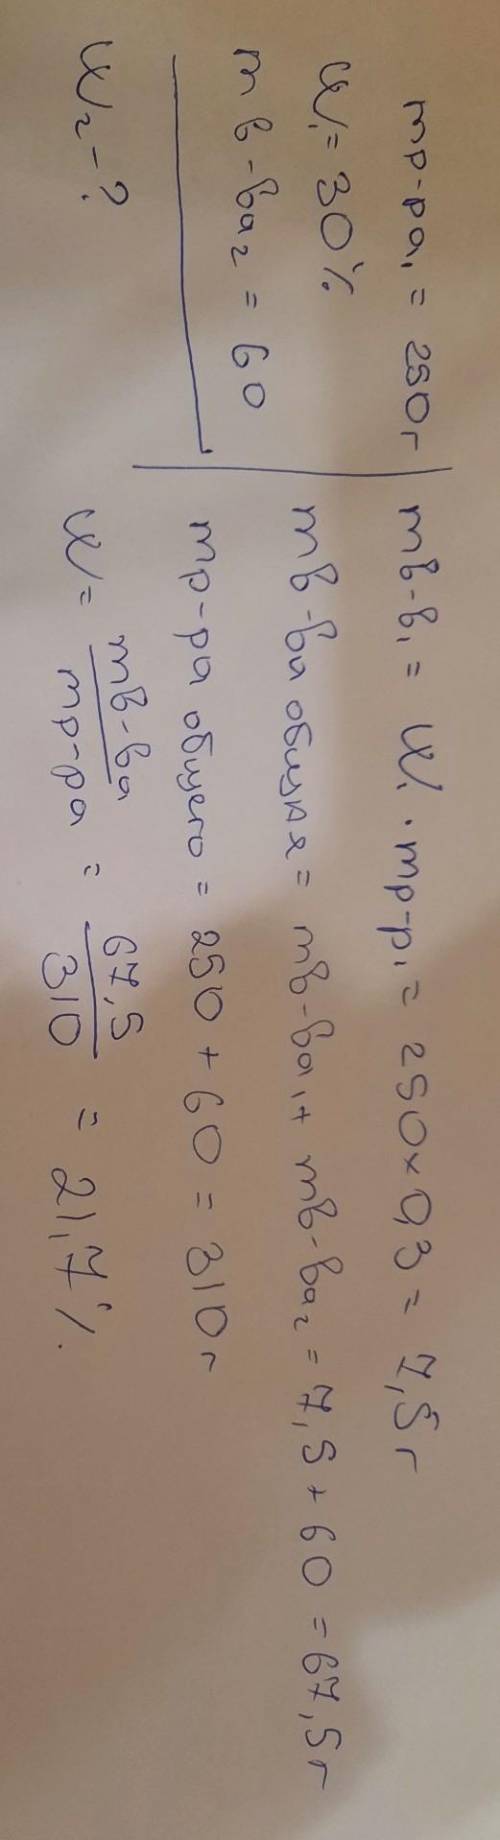 mр-ра₁ = 250г
W₁ = 30%
m в-ва₂ = 60
W₂ - ?
mв-в₁ = W₁ · mр-р₁ = 250 × 0,3 = 7,5 г
mв-ва общая = mв-ва₁ + mв-ва₂ = 7,5 + 60 = 67,5 г
mр-ра общего = 250 + 60 = 310 г
W = mв-ва / mр-ра = 67,5 / 310 = 21,7%.